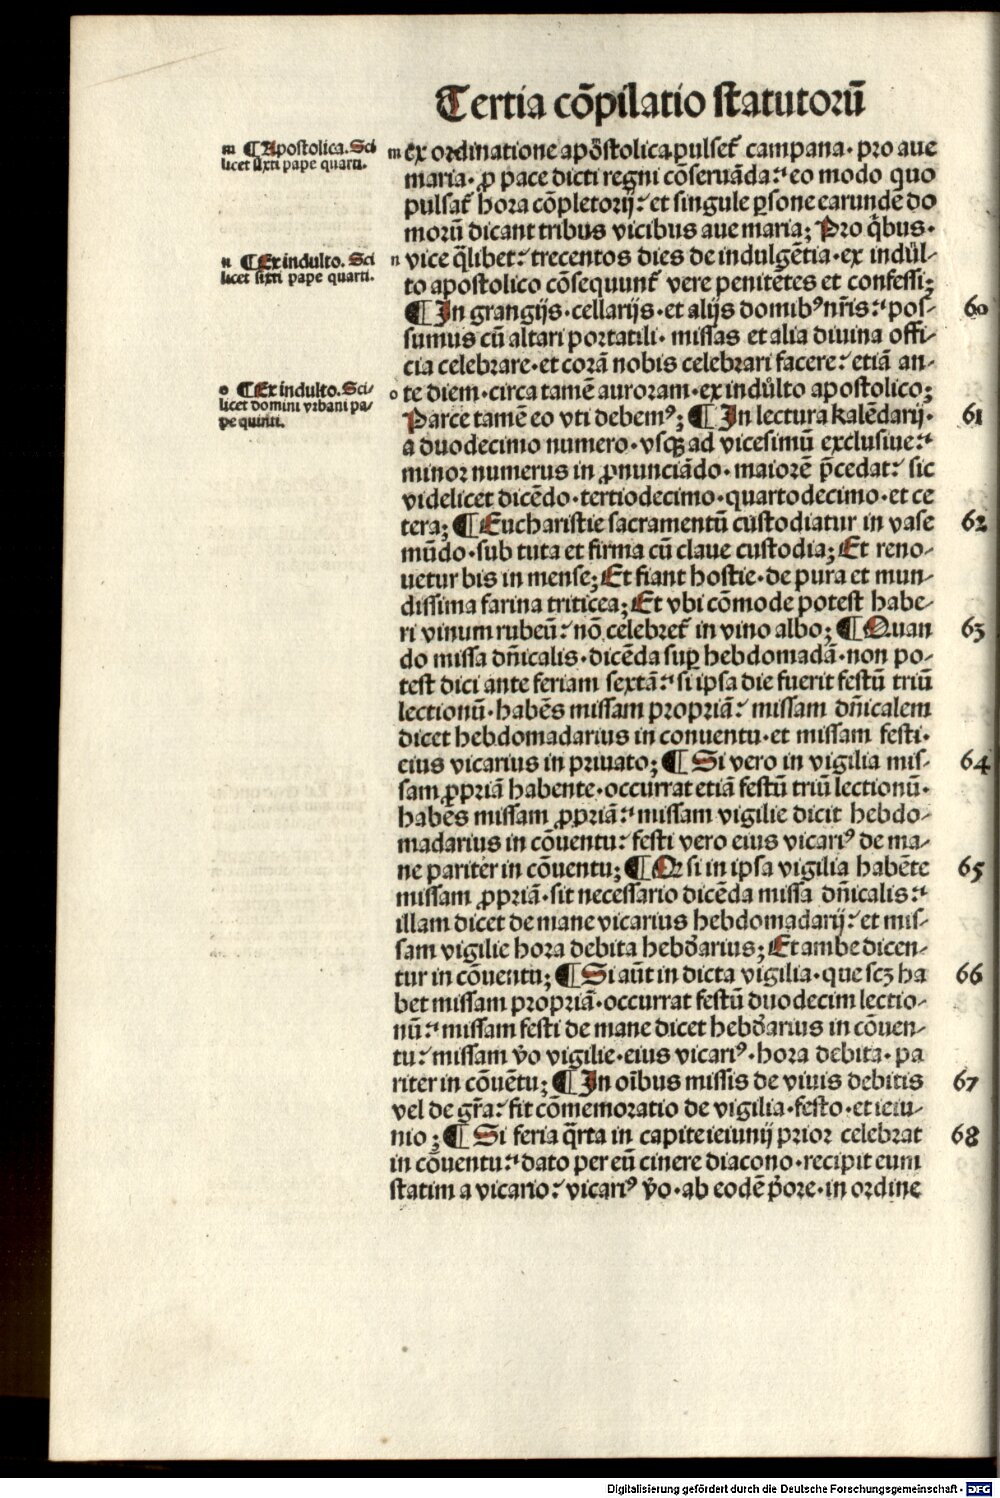 Tertia cõpilatio statutorũ
m ¶ Apostolica. Sci
licet sixti pape quarti.
n ¶ Ex indulto. Sci
licet sixti pape quarti.
o ¶ Ex indulto. Sci-
licet domini vrbani pa-
pe quinti.
m ex ordinatione apostolica pulset᷑ campana· pro aue
maria· ꝓ pace dicti regni cõseruãda: eo modo quo
pulsat᷑ hora cõpletorij: et singule ꝑsone earundẽ do
morũ dicant tribus vicibus aue maria; Pro q̃bus·
n vice q̃libet: trecentos dies de indulgẽtia· ex indul-
to apostolico cõsequunt᷑ vere penitẽtes et confessi;
¶ In grangijs· cellarijs· et alijs domibꝰ nr̃is: pos- 60
sumus cũ altari portatili· missas et alia diuina offi-
cia celebrare· et corã nobis celebrari facere: etiã an-
o te diem· circa tamẽ auroram· ex indulto apostolico;
Parce tamẽ eo vti debemꝰ; ¶ In lectura kalẽdarij· 61
a duodecimo numero· vsqꝫ ad vicesimũ exclusiue:
minor numerus in ꝓnunciãdo· maiorẽ p̃cedat: sic
videlicet dicẽdo· tertiodecimo· quartodecimo· et ce
tera; ¶ Eucharistie sacramentũ custodiatur in vase 62
mũdo· sub tuta et firma cũ claue custodia; Et reno-
uetur bis in mense; Et fiant hostie· de pura et mun-
dissima farina triticea; Et vbi cõmode potest habe-
ri vinum rubeũ: nõ celebret᷑ in vino albo; ¶ Quan 63
do missa dñicalis· dicẽda suꝑ hebdomadã· non po-
test dici ante feriam sextã: si ipsa die fuerit festũ triũ
lectionũ· habẽs missam propriã: missam dñicalem
dicet hebdomadarius in conuentu· et missam festi·
eius vicarius in priuato; ¶ Si vero in vigilia mis- 64
sam ꝓpriã habente· occurrat etiã festũ triũ lectionũ·
habẽs missam ꝓpriã: missam vigilie dicit hebdo-
madarius in cõuentu: festi vero eius vicariꝰ de ma-
ne pariter in cõuentu; ¶ Qꝛ si in ipsa vigilia habẽte 65
missam ꝓpriã· sit necessario dicẽda missa dñicalis:
illam dicet de mane vicarius hebdomadarij: et mis-
sam vigilie hora debita hebd̃arius; Et ambe dicen-
tur in cõuentu; ¶ Si aũt in dicta vigilia· que scꝫ ha 66
bet missam propriã· occurrat festũ duodecim lectio-
nũ: missam festi de mane dicet hebd̃arius in cõuen-
tu: missam v̾o vigilie· eius vicariꝰ· hora debita· pa
riter in cõuẽtu; ¶ In oĩbus missis de viuis debitis 67
vel de gr̃a: fit cõmemoratio de vigilia· festo· et ieiu-
nio; ¶ Si feria q̃rta in capite ieiunij prior celebrat 68
in cõuentu: dato per eũ cinere diacono· recipit eum
statim a vicario: vicariꝰ v̾o· ab eodẽ p̃ore· in ordine
Digitalisierung gefördert durch die Deutsche Forschungsgemeinschaft - DFG